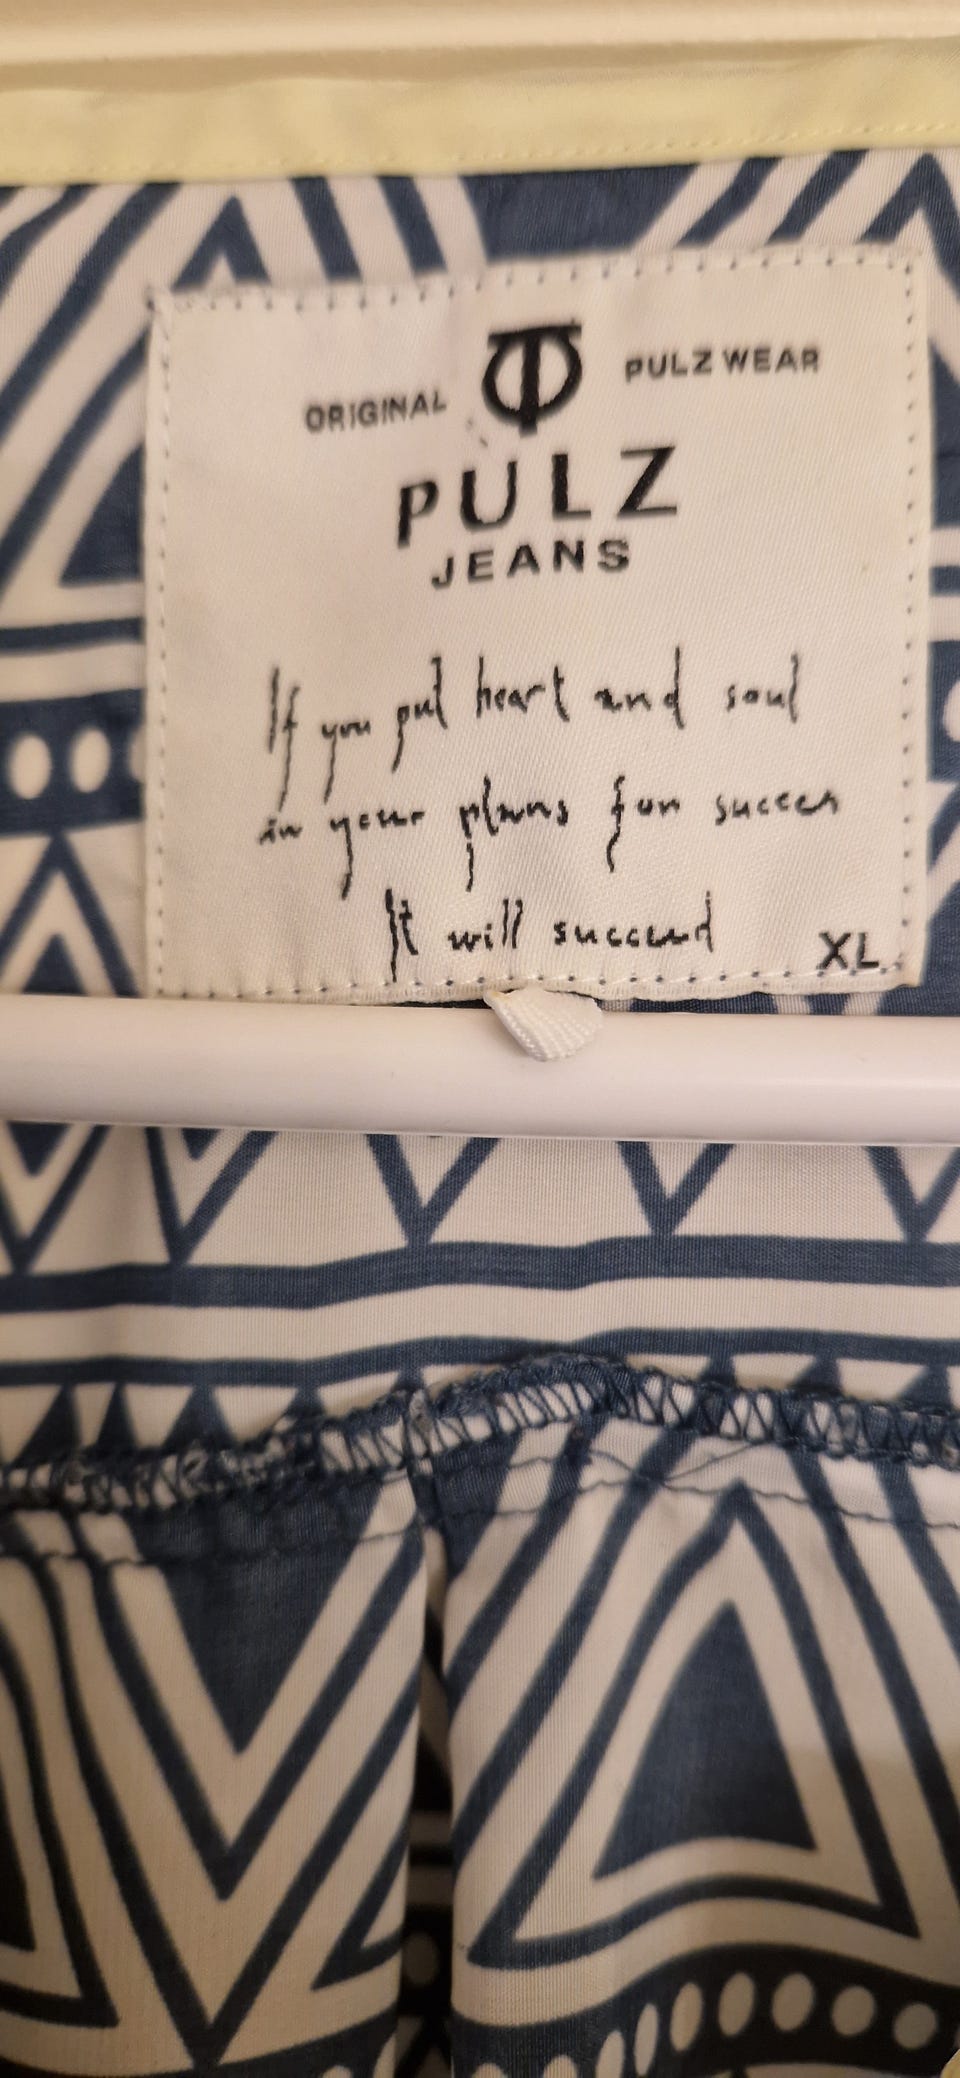 ORIGINAL PULZ WEAR
PULZ
JEANS
If you put heart and soul
in your plans for succes
It will succeed
XL